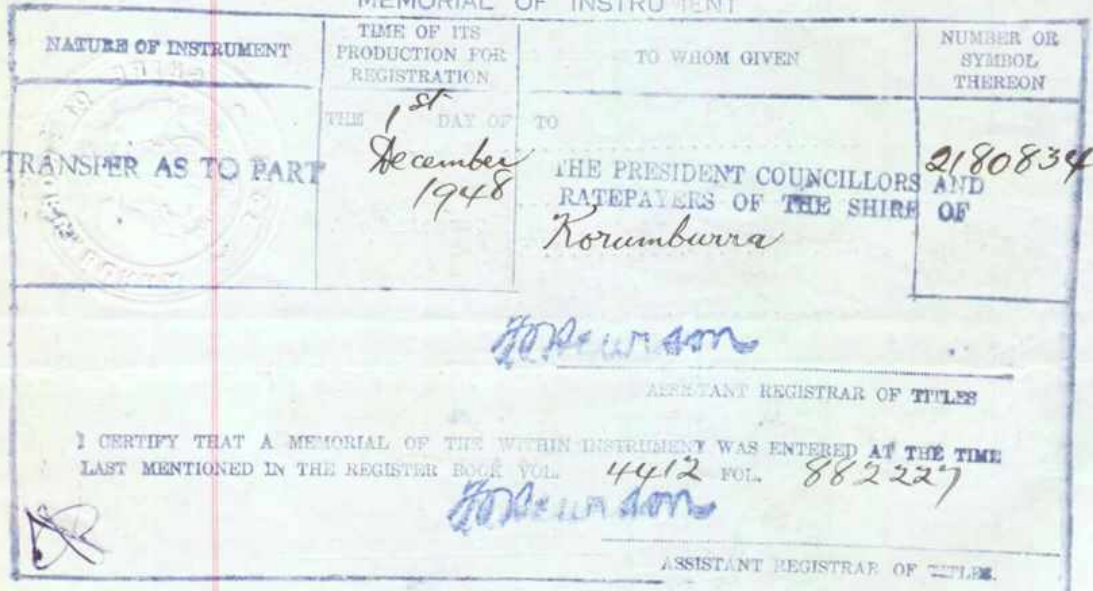 MEMORIAL OF INSTRUMENT
NATURE OF INSTRUMENT
TIME OF ITS
PRODUCTION FOR
REGISTRATION
TO WHOM GIVEN
NUMBER OR
SYMBOL
THEREON
THE 1st DAY OF
December
1948
TO
TRANSFER AS TO PART
THE PRESIDENT COUNCILLORS AND
RATEPAYERS OF THE SHIRE OF
Korumburra
2180834
ASSISTANT REGISTRAR OF TITLES
I CERTIFY THAT A MEMORIAL OF THE WITHIN INSTRUMENT WAS ENTERED AT THE TIME
LAST MENTIONED IN THE REGISTER BOOK VOL. 4412 FOL. 882227
ASSISTANT REGISTRAR OF TITLES.